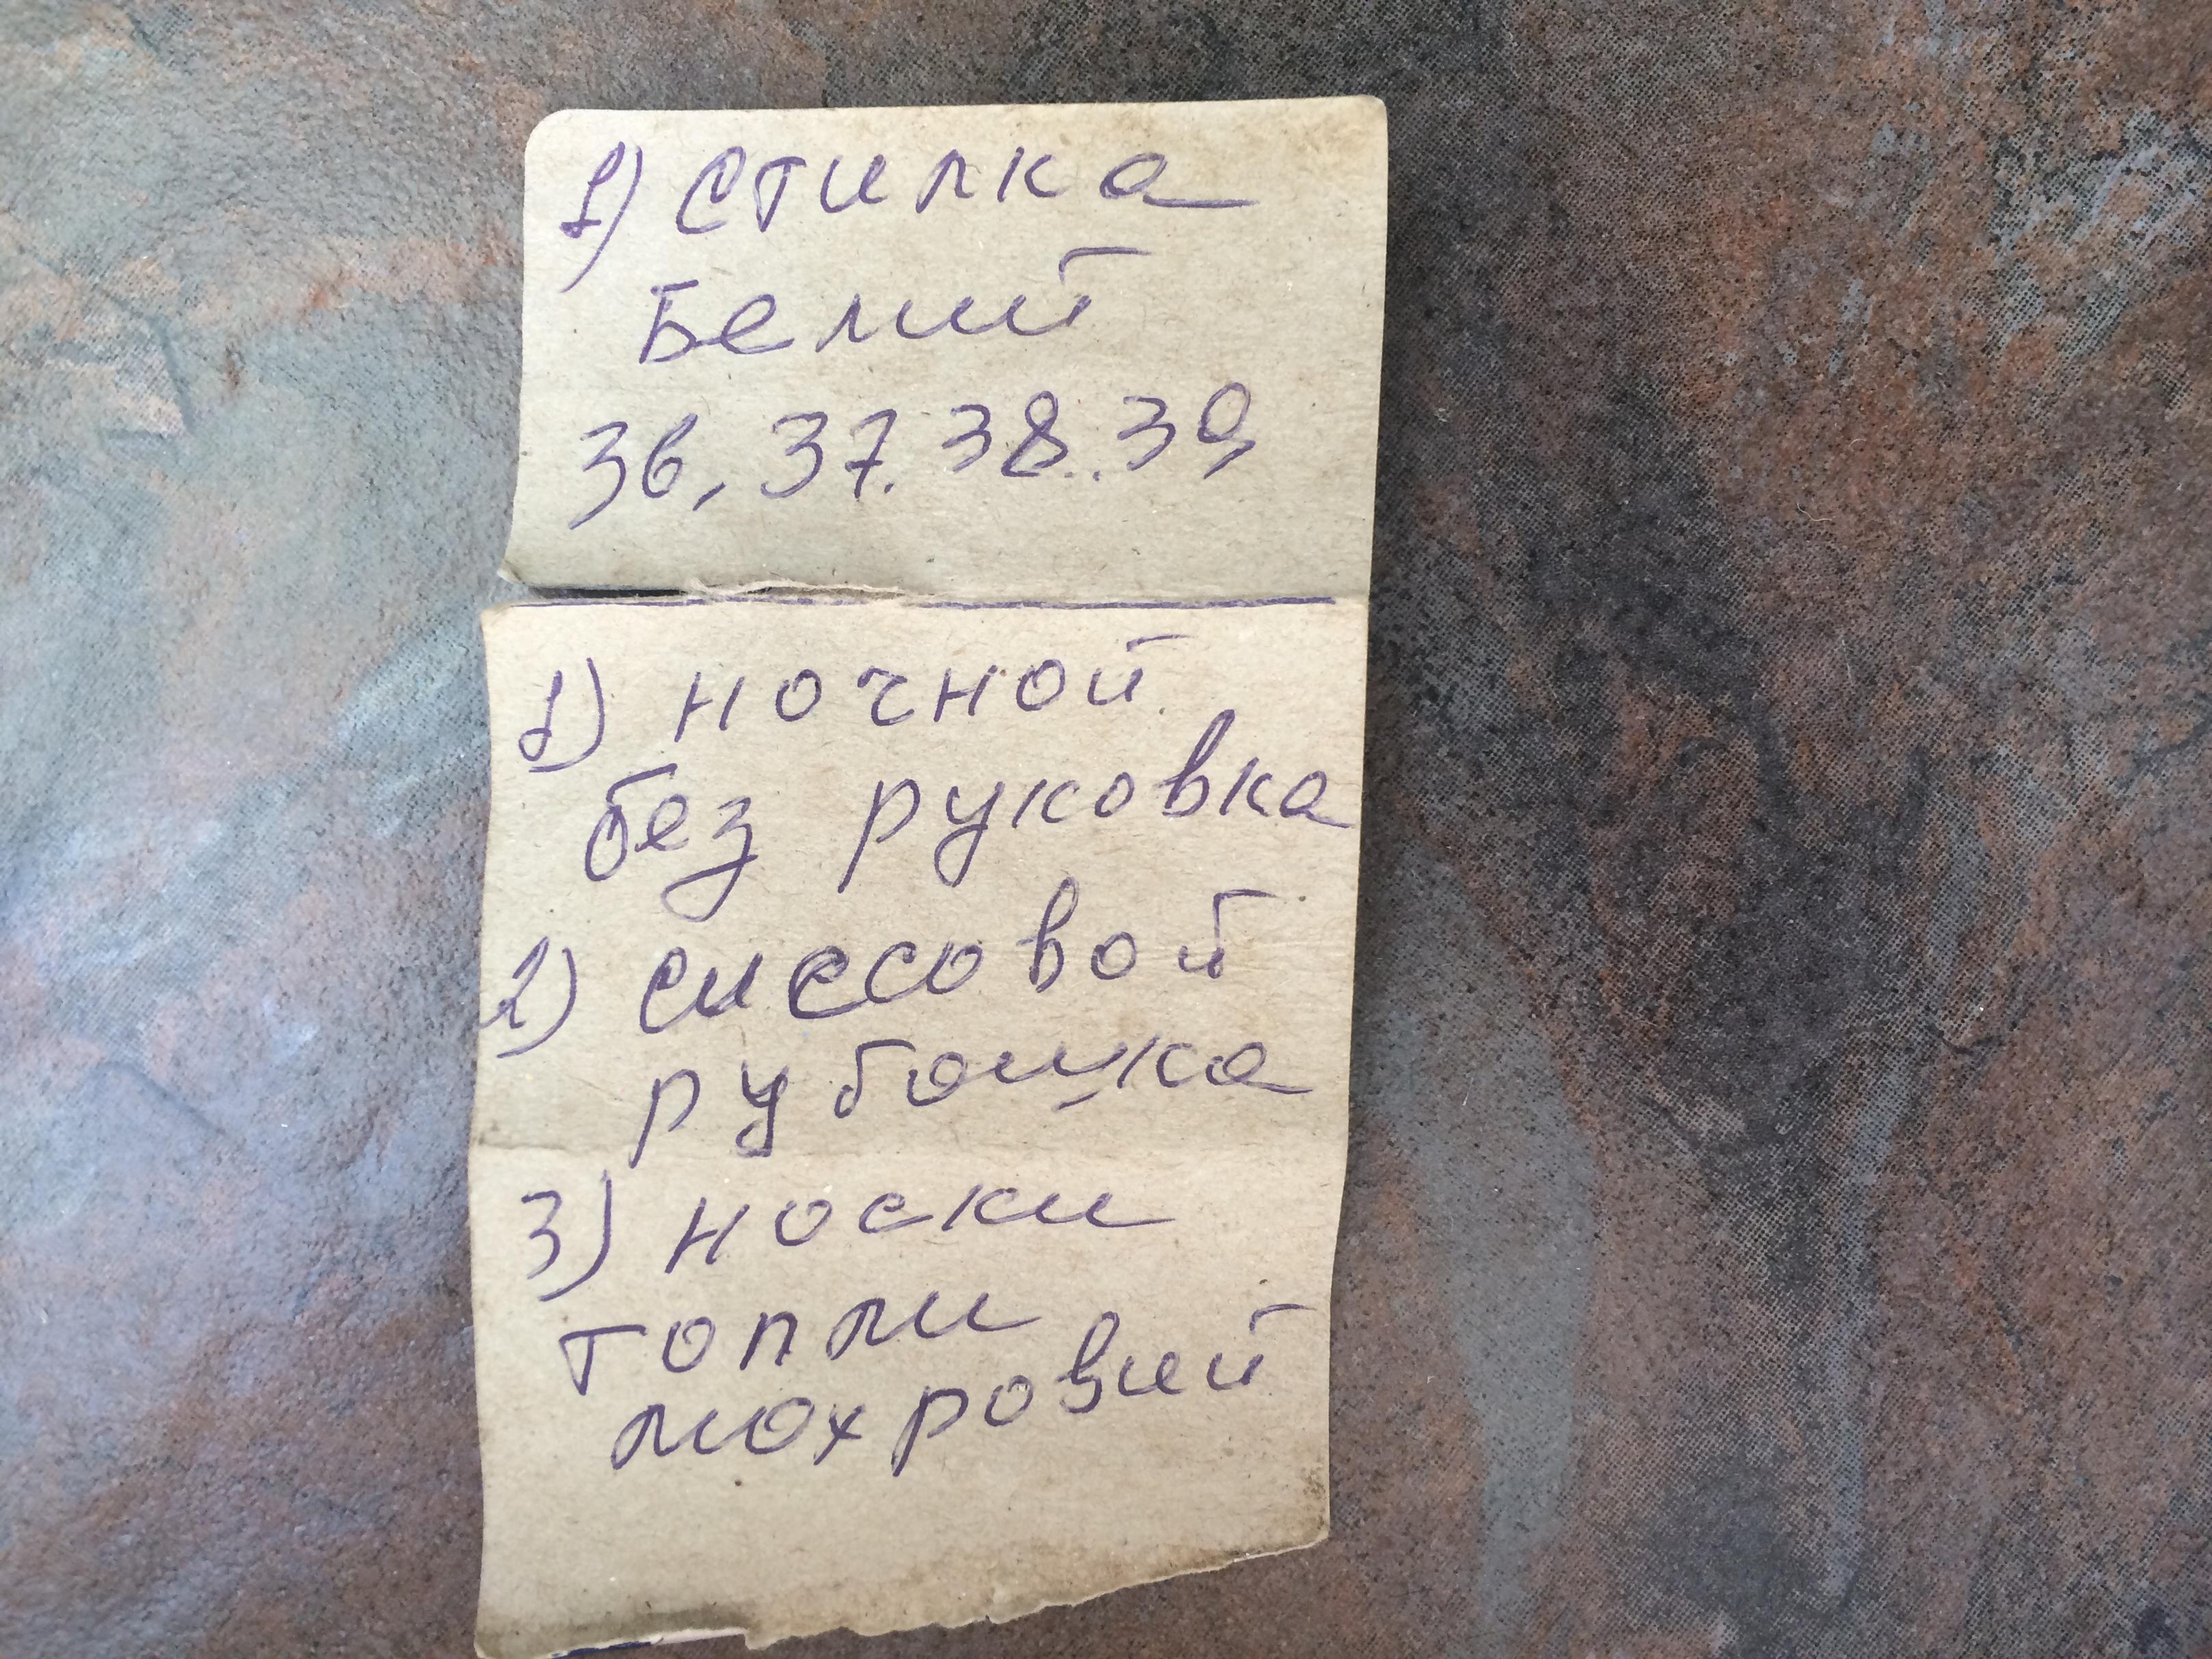 1) стилка
Белий
36, 37. 38.. 39
1) ночной
без руковка
2) сиссовой
рубошка
3) носки
топли
мохровий